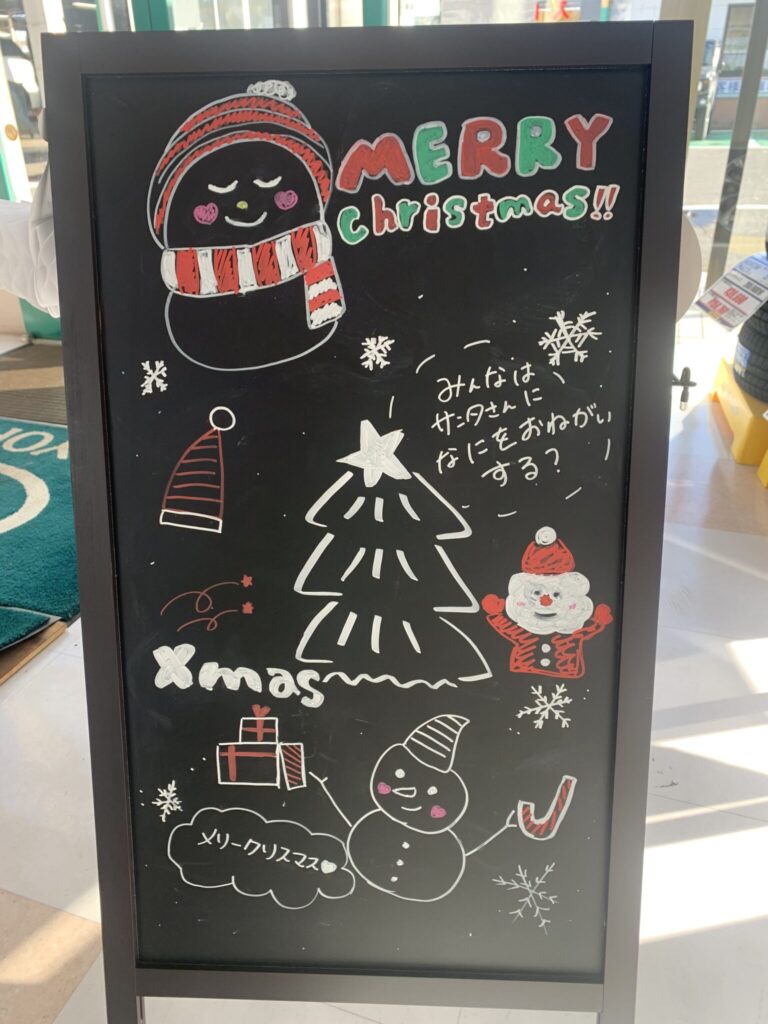 MERRY
christmas!!
みんなは
サンタさんに
なにをおねがい
する?
Xmas
メリークリスマス♡